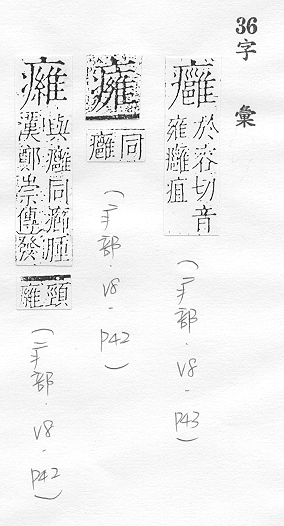 36字 彙
癰
於容切音
雍癰疽
(疒部.V8.P43)
同
癰
(疒部.V8.P42)
癕
與癰同癤腫
漢鄭崇傳發
頸
癰
(疒部.V8.P42)